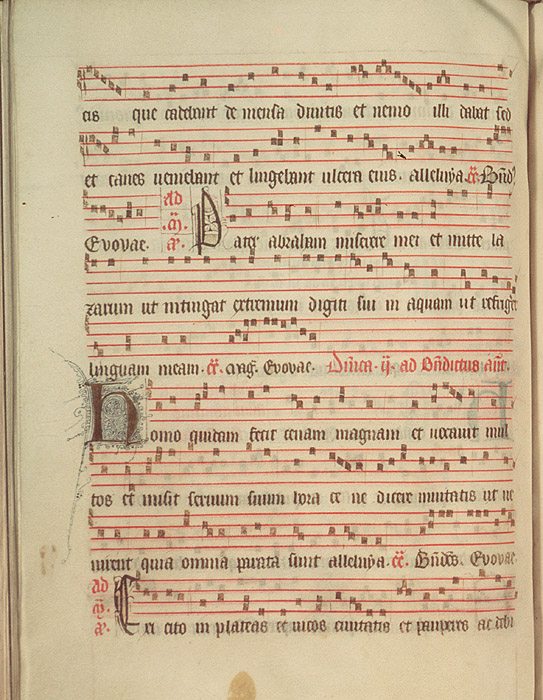 eis que cadebant de mensa divitis et nemo illi dabat sed
et canes veniebant et lingebant ulcera eius. alleluya. Bnd
Evovae. ad Pater abraham miserere mei et mitte la
zarum ut intingat extremum digiti sui in aquam ut refrige
linguam meam. Mag. Evovae. Dnica. ij. ad Bndictus ant.
Homo quidam fecit cenam magnam et vocavit mul
tos et misit servum suum hora ce ne dicere invitatis ut ve
nirent quia omnia parata sunt alleluya. Bnds. Evovae
ad Exi cito in plateas et vicos civitatis et pauperes ac debi